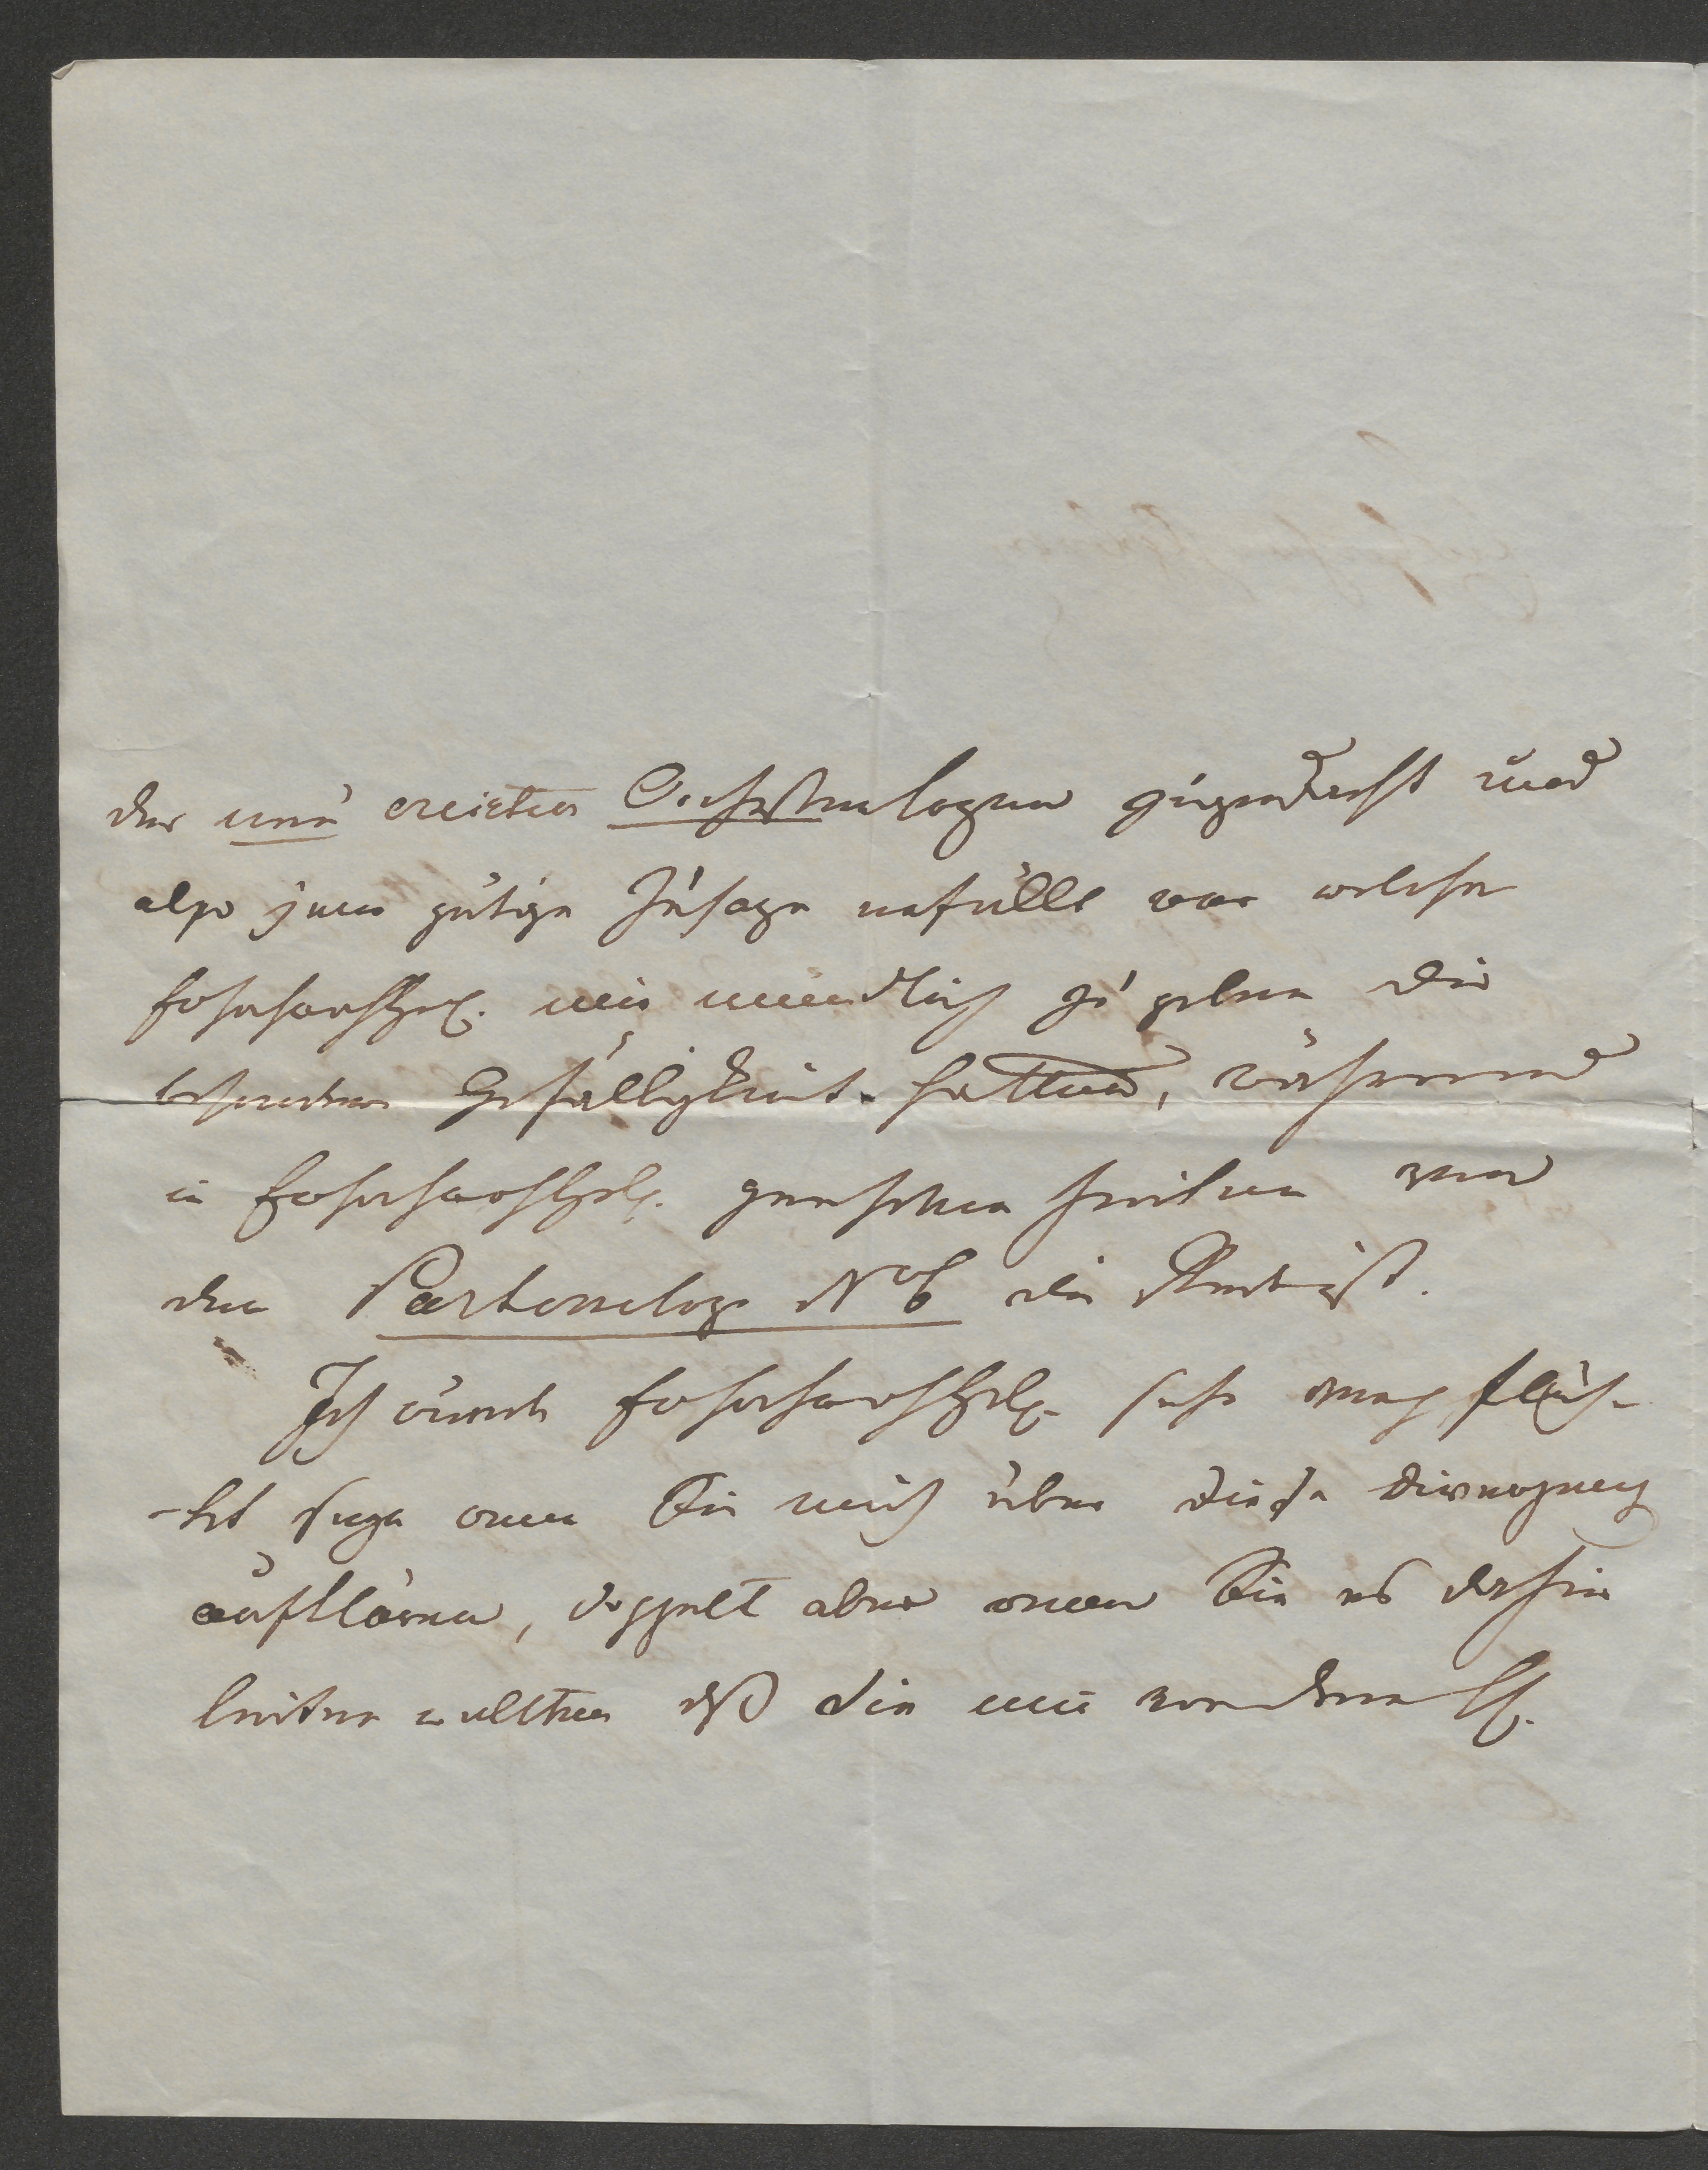 der neu creirten Orchesterlogen zugedacht und
also jene gütige Zusage erfüllt war welche
Ew. Hochwohlgeb. mir mündlich zu geben die
besondere Gefälligkeit hatten, während
in Ew. Hochwohlgeb. geehrten Zeilen von
der Parterreloge No 6 die Rede ist.
Ich würde Ew. Hochwohlgeb. sehr verpflich-
-tet seyn wenn Sie mich über diese
aufklären, doppelt aber wenn Sie es dahin
leiten wollten daß die mir von dem H.